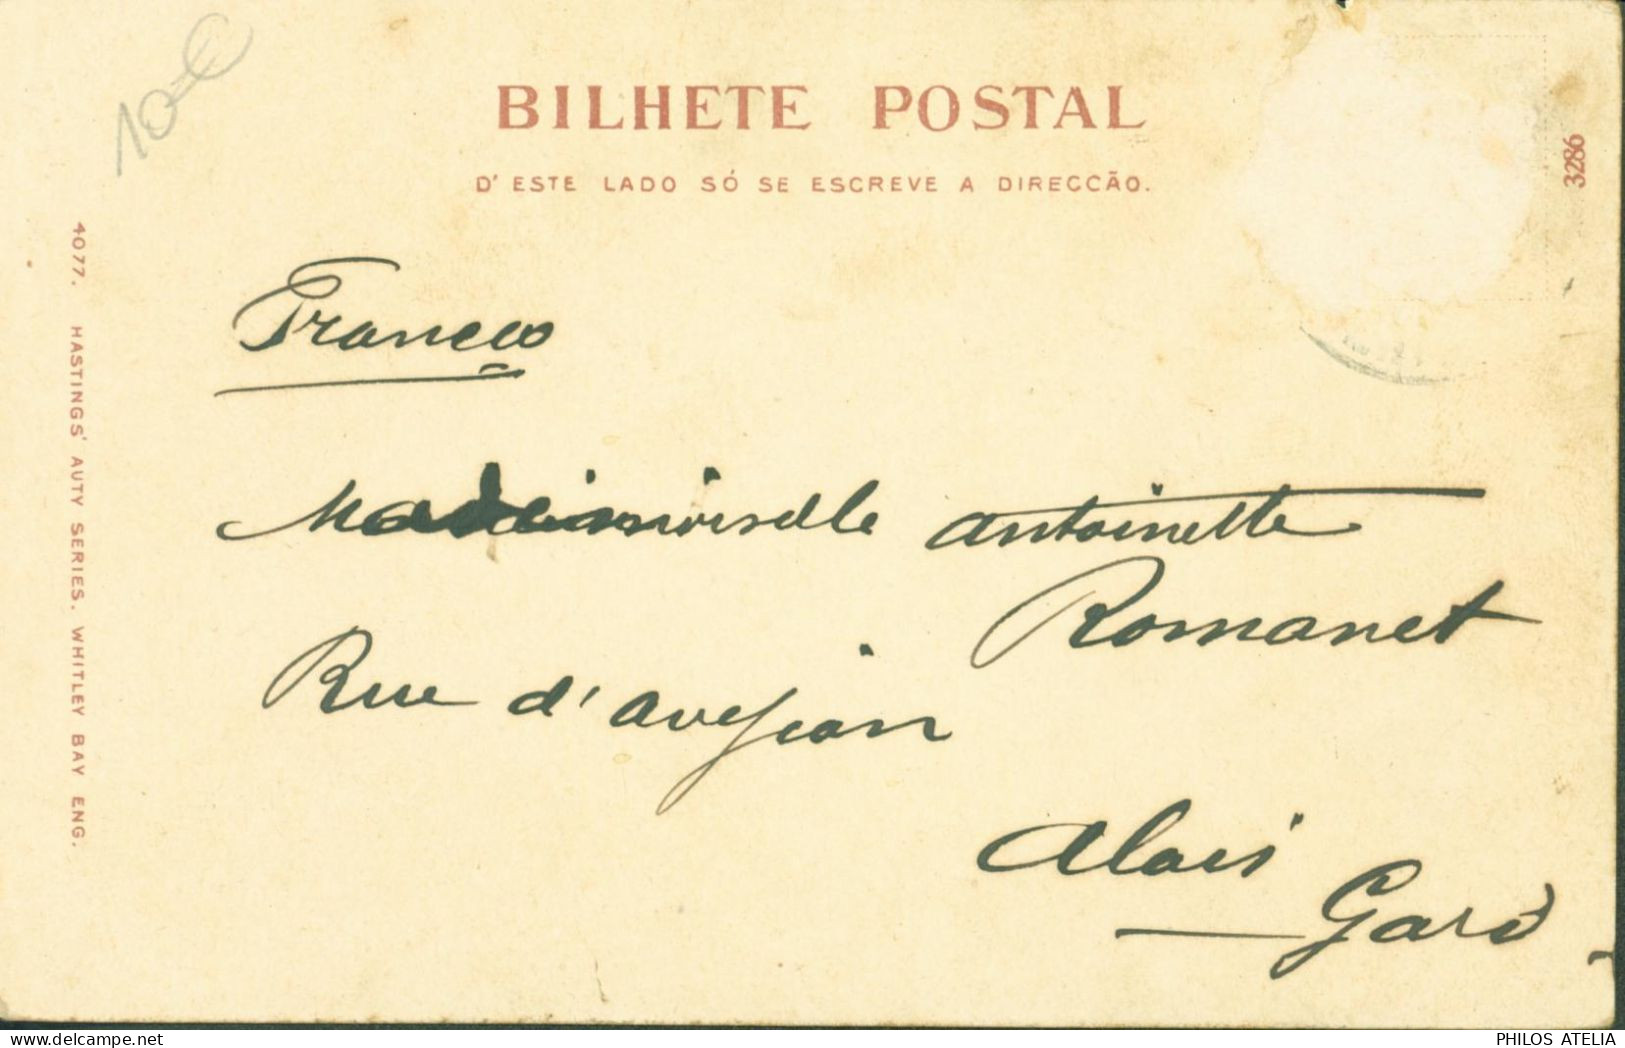 10€
BILHETE POSTAL
D'ESTE LADO SÓ SE ESCREVE A DIRECCÃO.
3286
4077. HASTINGS' AUTY SERIES. WHITLEY BAY ENG.
France
Mademoiselle Antoinette
Romanet
Rue d'Avejean
Alais
Gard
PHILOS ATELIA